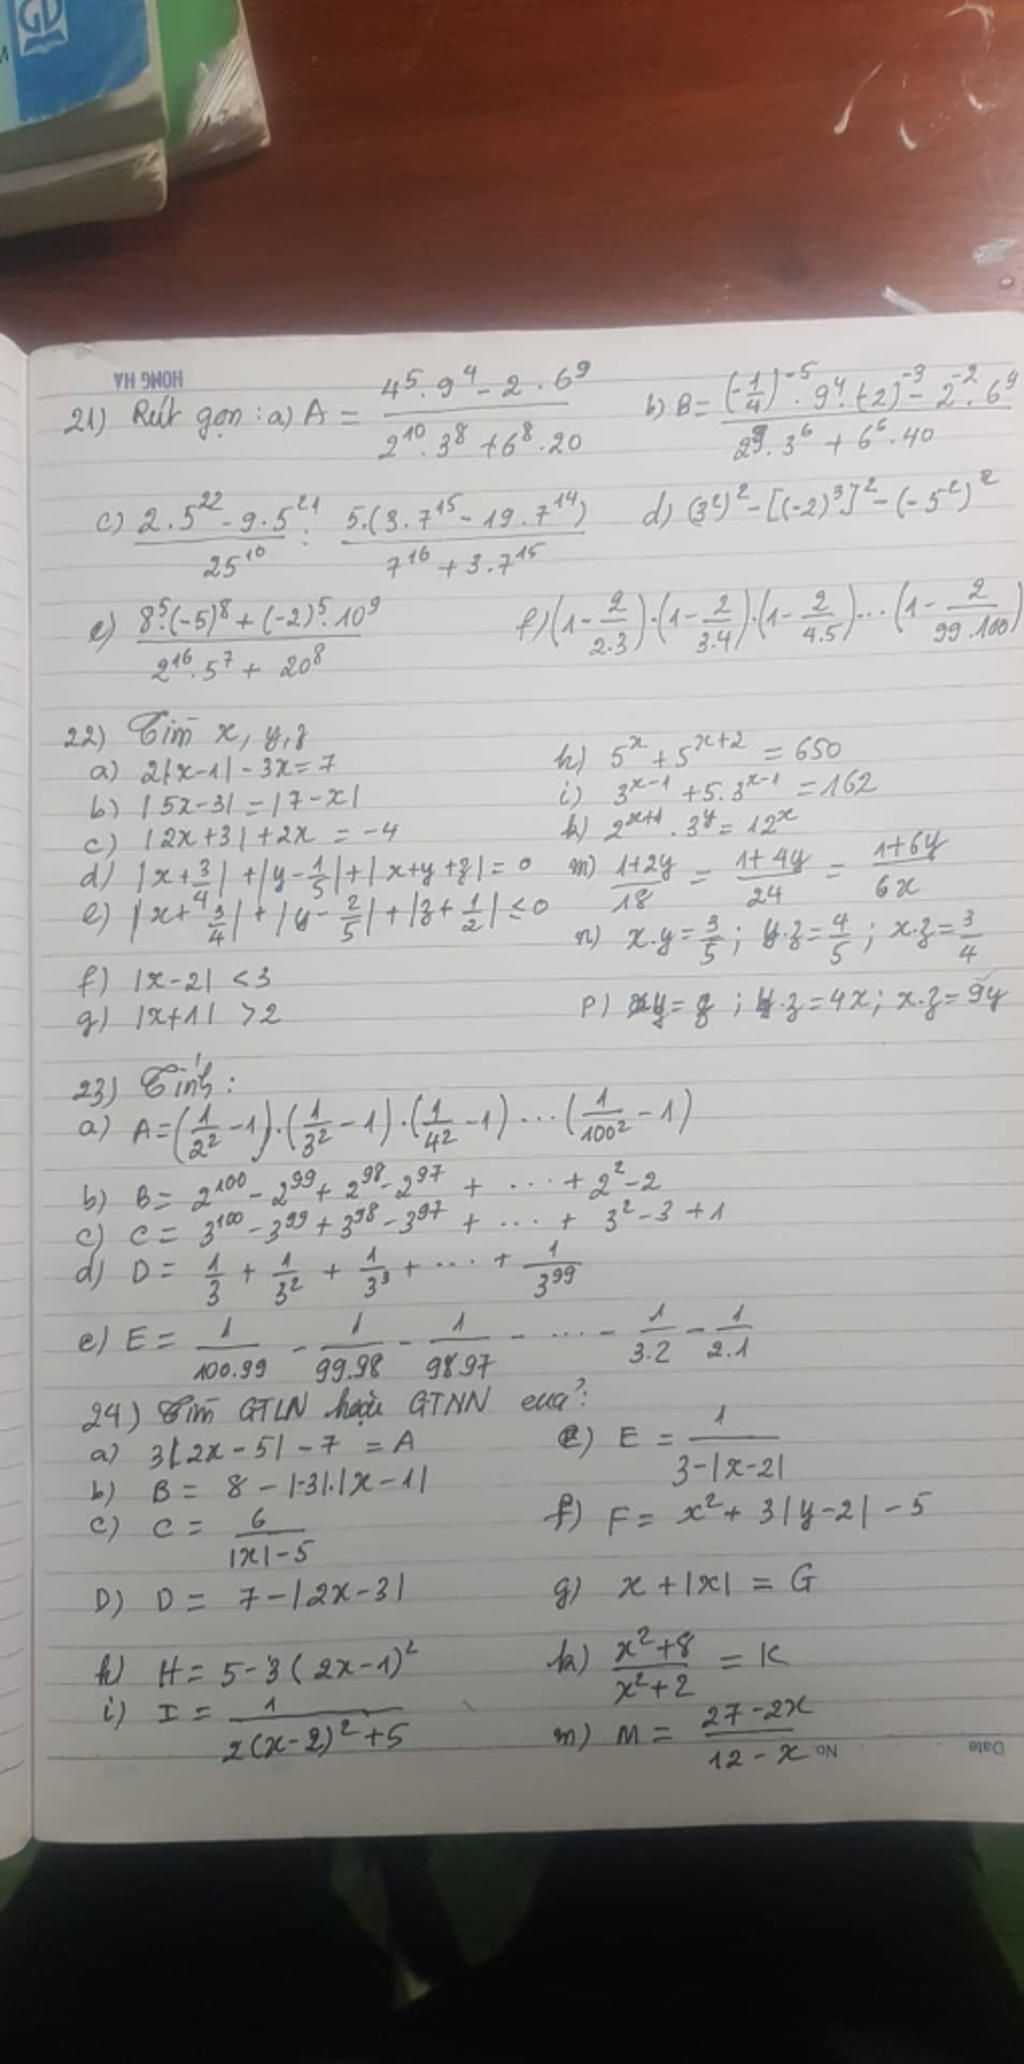 GD
HONG HA
21) Rút gọn : a) A = (4^5 . 9^4 - 2 . 6^9) / (2^10 . 3^8 + 6^8 . 20)
b) B = ((-1/4)^-5 . 9^4 . (-2)^-3 - 2^-2 . 6^9) / (2^9 . 3^6 + 6^6 . 40)
c) (2 . 5^22 - 9 . 5^21) / 25^10 : 5.(3.7^15 - 19.7^14) / (7^16 + 3.7^15)
d) (3^2)^2 - [(-2)^3]^2 - (-5^2)^2
e) (8^5.(-5)^8 + (-2)^5.10^9) / (2^16.5^7 + 20^8)
f) (1 - 2/2.3).(1 - 2/3.4).(1 - 2/4.5)...(1 - 2/99.100)
22) Tìm x, y, z
a) 2|x-1| - 3x = 7
b) |5x-3| = |7-x|
c) |2x+3| + 2x = -4
d) |x + 3/4| + |y - 1/5| + |x+y+z| = 0
e) |x + 3/4| + |y - 2/5| + |z + 1/2| ≤ 0
f) |x-2| < 3
g) |x+1| > 2
h) 5^x + 5^(x+2) = 650
i) 3^(x-1) + 5.3^(x-1) = 162
k) 2^(x+1) . 3^y = 12^x
m) (1+2y)/18 = (1+4y)/24 = (1+6y)/6x
n) x.y = 3/5 ; y.z = 4/5 ; x.z = 3/4
p) xy = z ; y.z = 4x ; x.z = 9y
23) Tính :
a) A = (1/2^2 - 1).(1/3^2 - 1).(1/4^2 - 1)...(1/100^2 - 1)
b) B = 2^100 - 2^99 + 2^98 - 2^97 + ... + 2^2 - 2
c) C = 3^100 - 3^99 + 3^98 - 3^97 + ... + 3^2 - 3 + 1
d) D = 1/3 + 1/3^2 + 1/3^3 + ... + 1/3^99
e) E = 1/100.99 - 1/99.98 - 1/98.97 - ... - 1/3.2 - 1/2.1
24) Tìm GTLN hoặc GTNN của :
a) 3|2x - 5| - 7 = A
b) B = 8 - |-3|.|x - 1|
c) C = 6/(|x| - 5)
D) D = 7 - |2x - 3|
e) E = 1/(3 - |x - 2|)
f) F = x^2 + 3|y - 2| - 5
g) x + |x| = G
h) H = 5 - 3(2x - 1)^2
i) I = 1/(2(x - 2)^2 + 5)
k) (x^2 + 8)/(x^2 + 2) = K
m) M = (27 - 2x)/(12 - x)
No.
Date